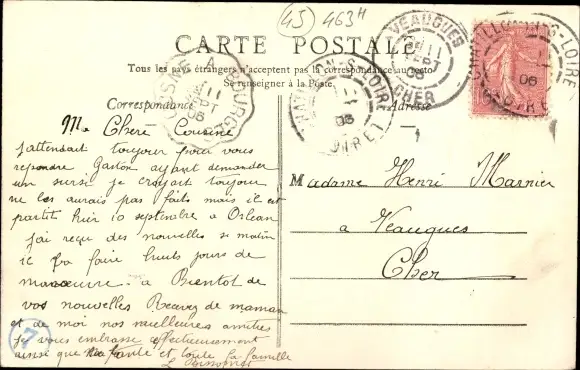 45 463H
CARTE POSTALE
Tous les pays étrangers n'acceptent pas la correspondance au recto
Se renseigner à la Poste.
Correspondance
Adresse
Ma Chere Cousine
j'attendait toujour pour vous
repondre Gaston ayant demander
un sursi je croyait toujour
ne les aurais pas faits mais il est
partit hier 10 septembre a Orléan
j'ai reçu des nouvelles se matin
il va faire huit jours de
manœuvre a Bientot de
vos nouvelles Recevez de maman
et de moi nos meilleures amities
je vous embrasse affectueusement
ainsi que tante et toute la famille
Madame Henri Marnier
a Veaugues
Cher
VEAUGUES
11
SEPT
CHER
CHATILLON-S-LOIRE
06
LOIRET
BOURGES
11
SEPT
06
7